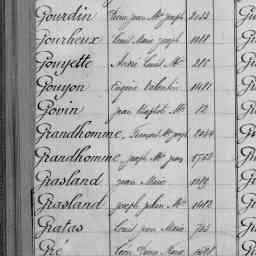 Gourdin Pierre jean Mie joseph 2022
Gourheux Louis Marie joseph 1088
Gouyette André Louis Mie 285
Gouyon Eugène Valentin 1481
Govin jean Baptiste Mie 12
Grandhomme, joseph
Grandhomme, joseph Mie jean
Grasland jean Marie
Grasland joseph julien Mie 1412
Gratas Louis jean Marie 735
Gré Marie